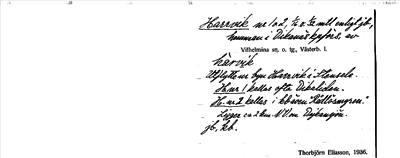 Harrvik nr 1 o 2, 1/2 o 3/32 mtl enligt jb,
hemman i Dikanäs kpförs., av
Vilhelmina sn. o. tg., Västerb. l.
hàrvik
Utflyttn. byn Harrvik i Stensele.
H. nr 1 kallas ofta Dikaliden.
H. nr 2 kallas i kboken "Källromyren."
Ligger ca 2 km NV om Dikasjön.
jb, kb.
Thorbjörn Eliasson, 1936.